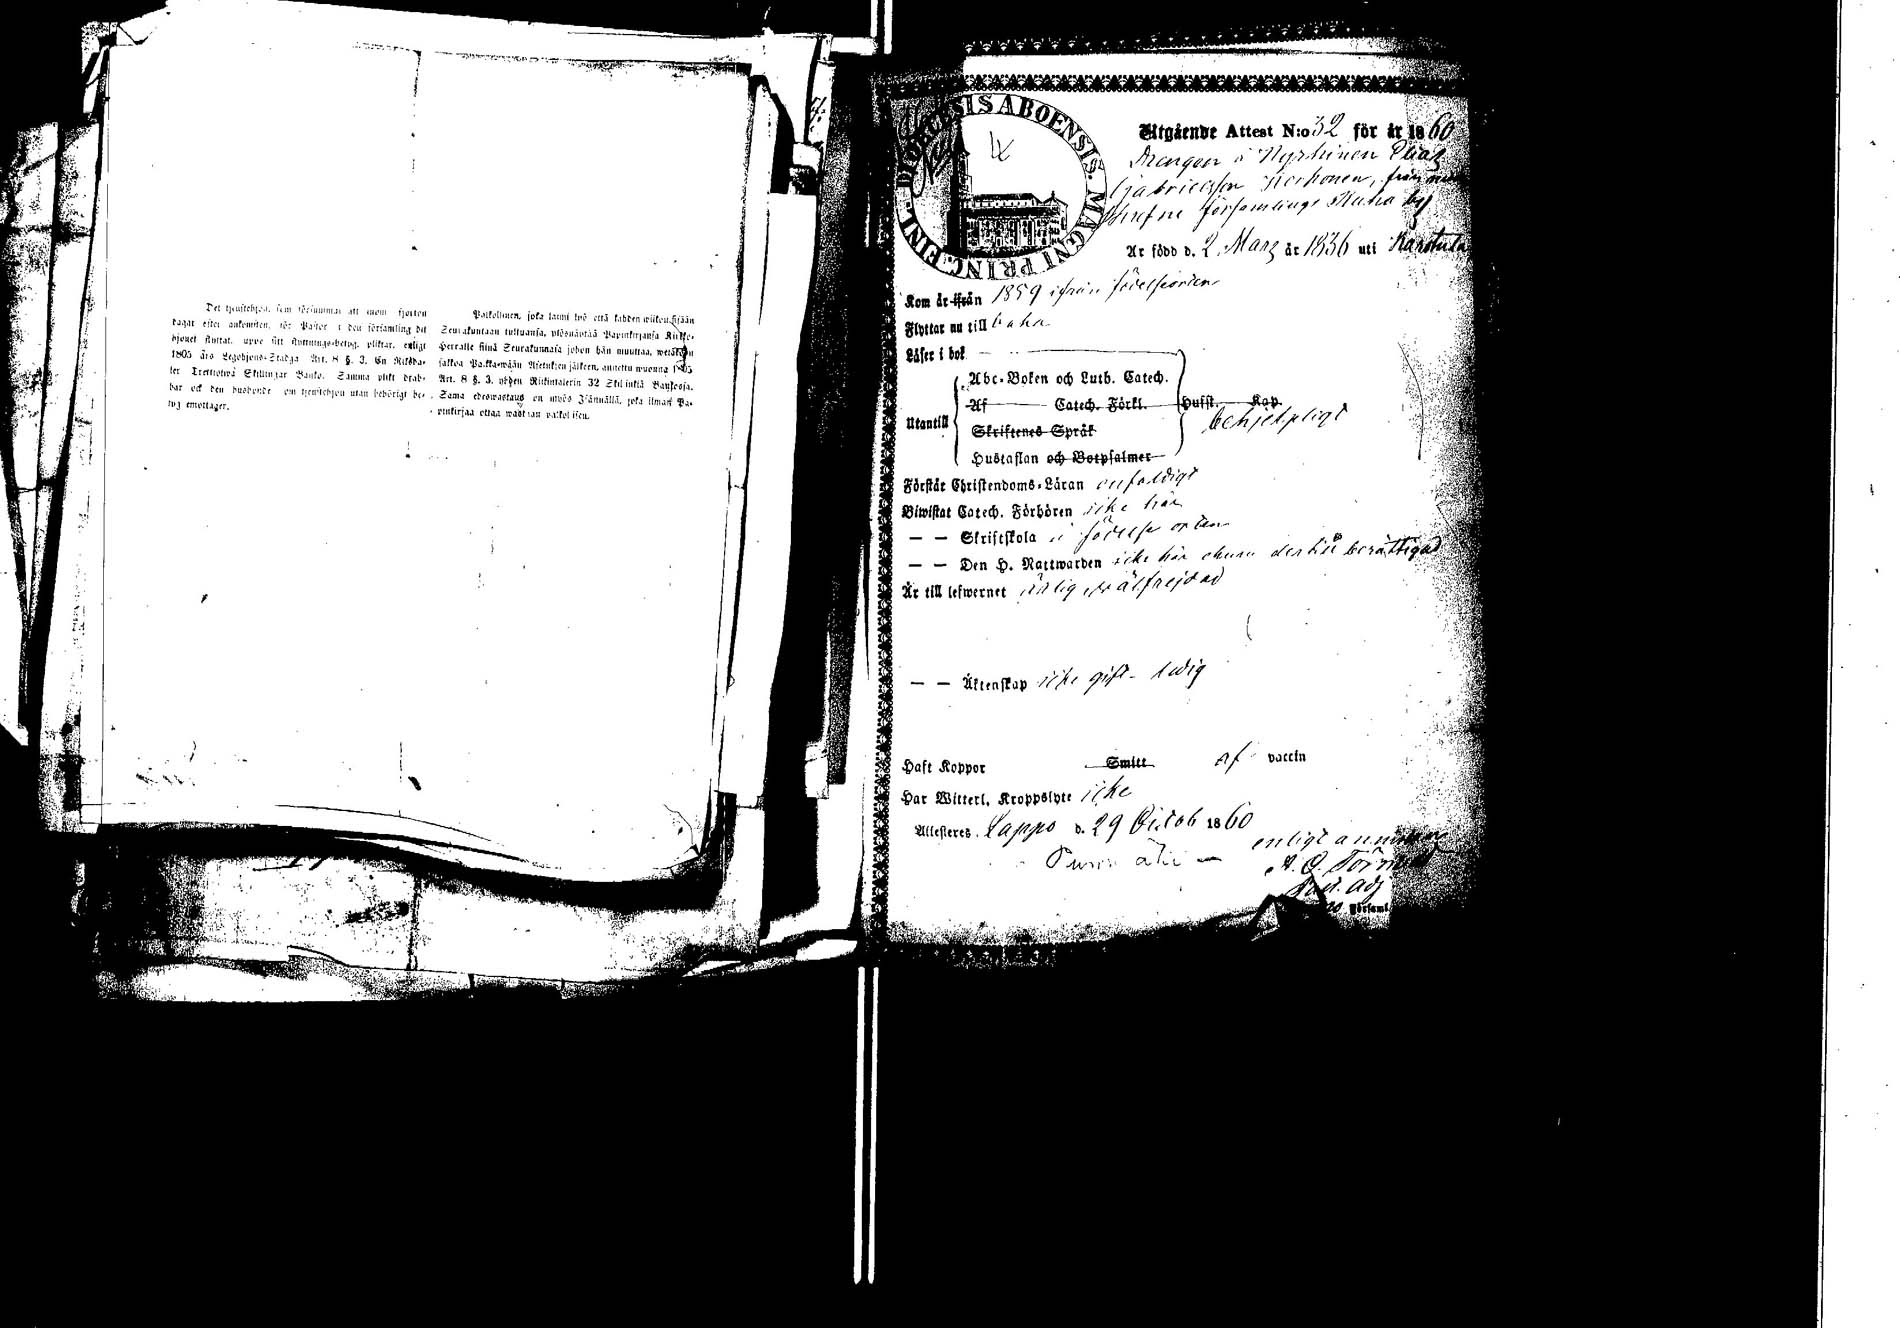 Det tjenstehjon, som försummar att inom fjorton
dagar efter ankomsten, för Pastor i den församling dit
hjonet flyttat, uppte sitt flyttnings-betyg, pliktar, enligt
1805 års Legohjons-Stadga Art. 8 §. 3. En Riksda-
ler Trettiotwå Skillingar Banko. Samma plikt drab-
bar ock den husbonde som tjenstehjon utan behörigt be-
tyg emottager.
Palkollinen, joka laimi lyö että kahden wiikon sisään
Seurakuntaan tultuansa, ylösnäyttää Papinkirjansa Kirkko-
Herralle siinä Seurakunnassa johon hän muuttaa, wetäköön
sakkoa Palkkawäen Asetuksen jälkeen, annettu wuonna 1805
Art. 8 §. 3. yhden Rikintalerin 32 Skillinkiä Bankossa.
Sama edeswastaus on myös Isännällä, joka ilman Pa-
pinkirjaa ottaa wastaan palkollisen.
DIOECESIS ABOENSIS. MAGNI PRINC. FINL.
Utgående Attest N:o 32 för år 1860
Drengen å Hyrhinen Elias
Gabrielsson Kerhonen, från
försambings Kuha by
Är född d. 2 Mars år 1836 uti Karstula
Kom år ifrån 1859 ifrån födelseorten
Flyttar nu till baka
Läser i bok
Abc-Boken och Luth. Catech.
Af Catech. Förkl. Hufst. Kap.
Utantill behjelpligt
Skriftenes Språk
Hustaflan och Botpsalmer
Förstår Christendoms-Läran enfaldigt
Biwistat Catech. Förhören icke här
— — Skriftskola i födelse orten
— — Den H. Nattwarden icke här ehuru dertill berättigad
Är till lefwernet ärlig, wälfrejdad
— — Äktenskap icke gift - ledig
Haft Koppor Smitt af vaccin
Har Witterl. Kroppslyte icke
Attesteres, Lappo d. 29 Octob 1860
enligt
A. O.
Past. adj
Församl.